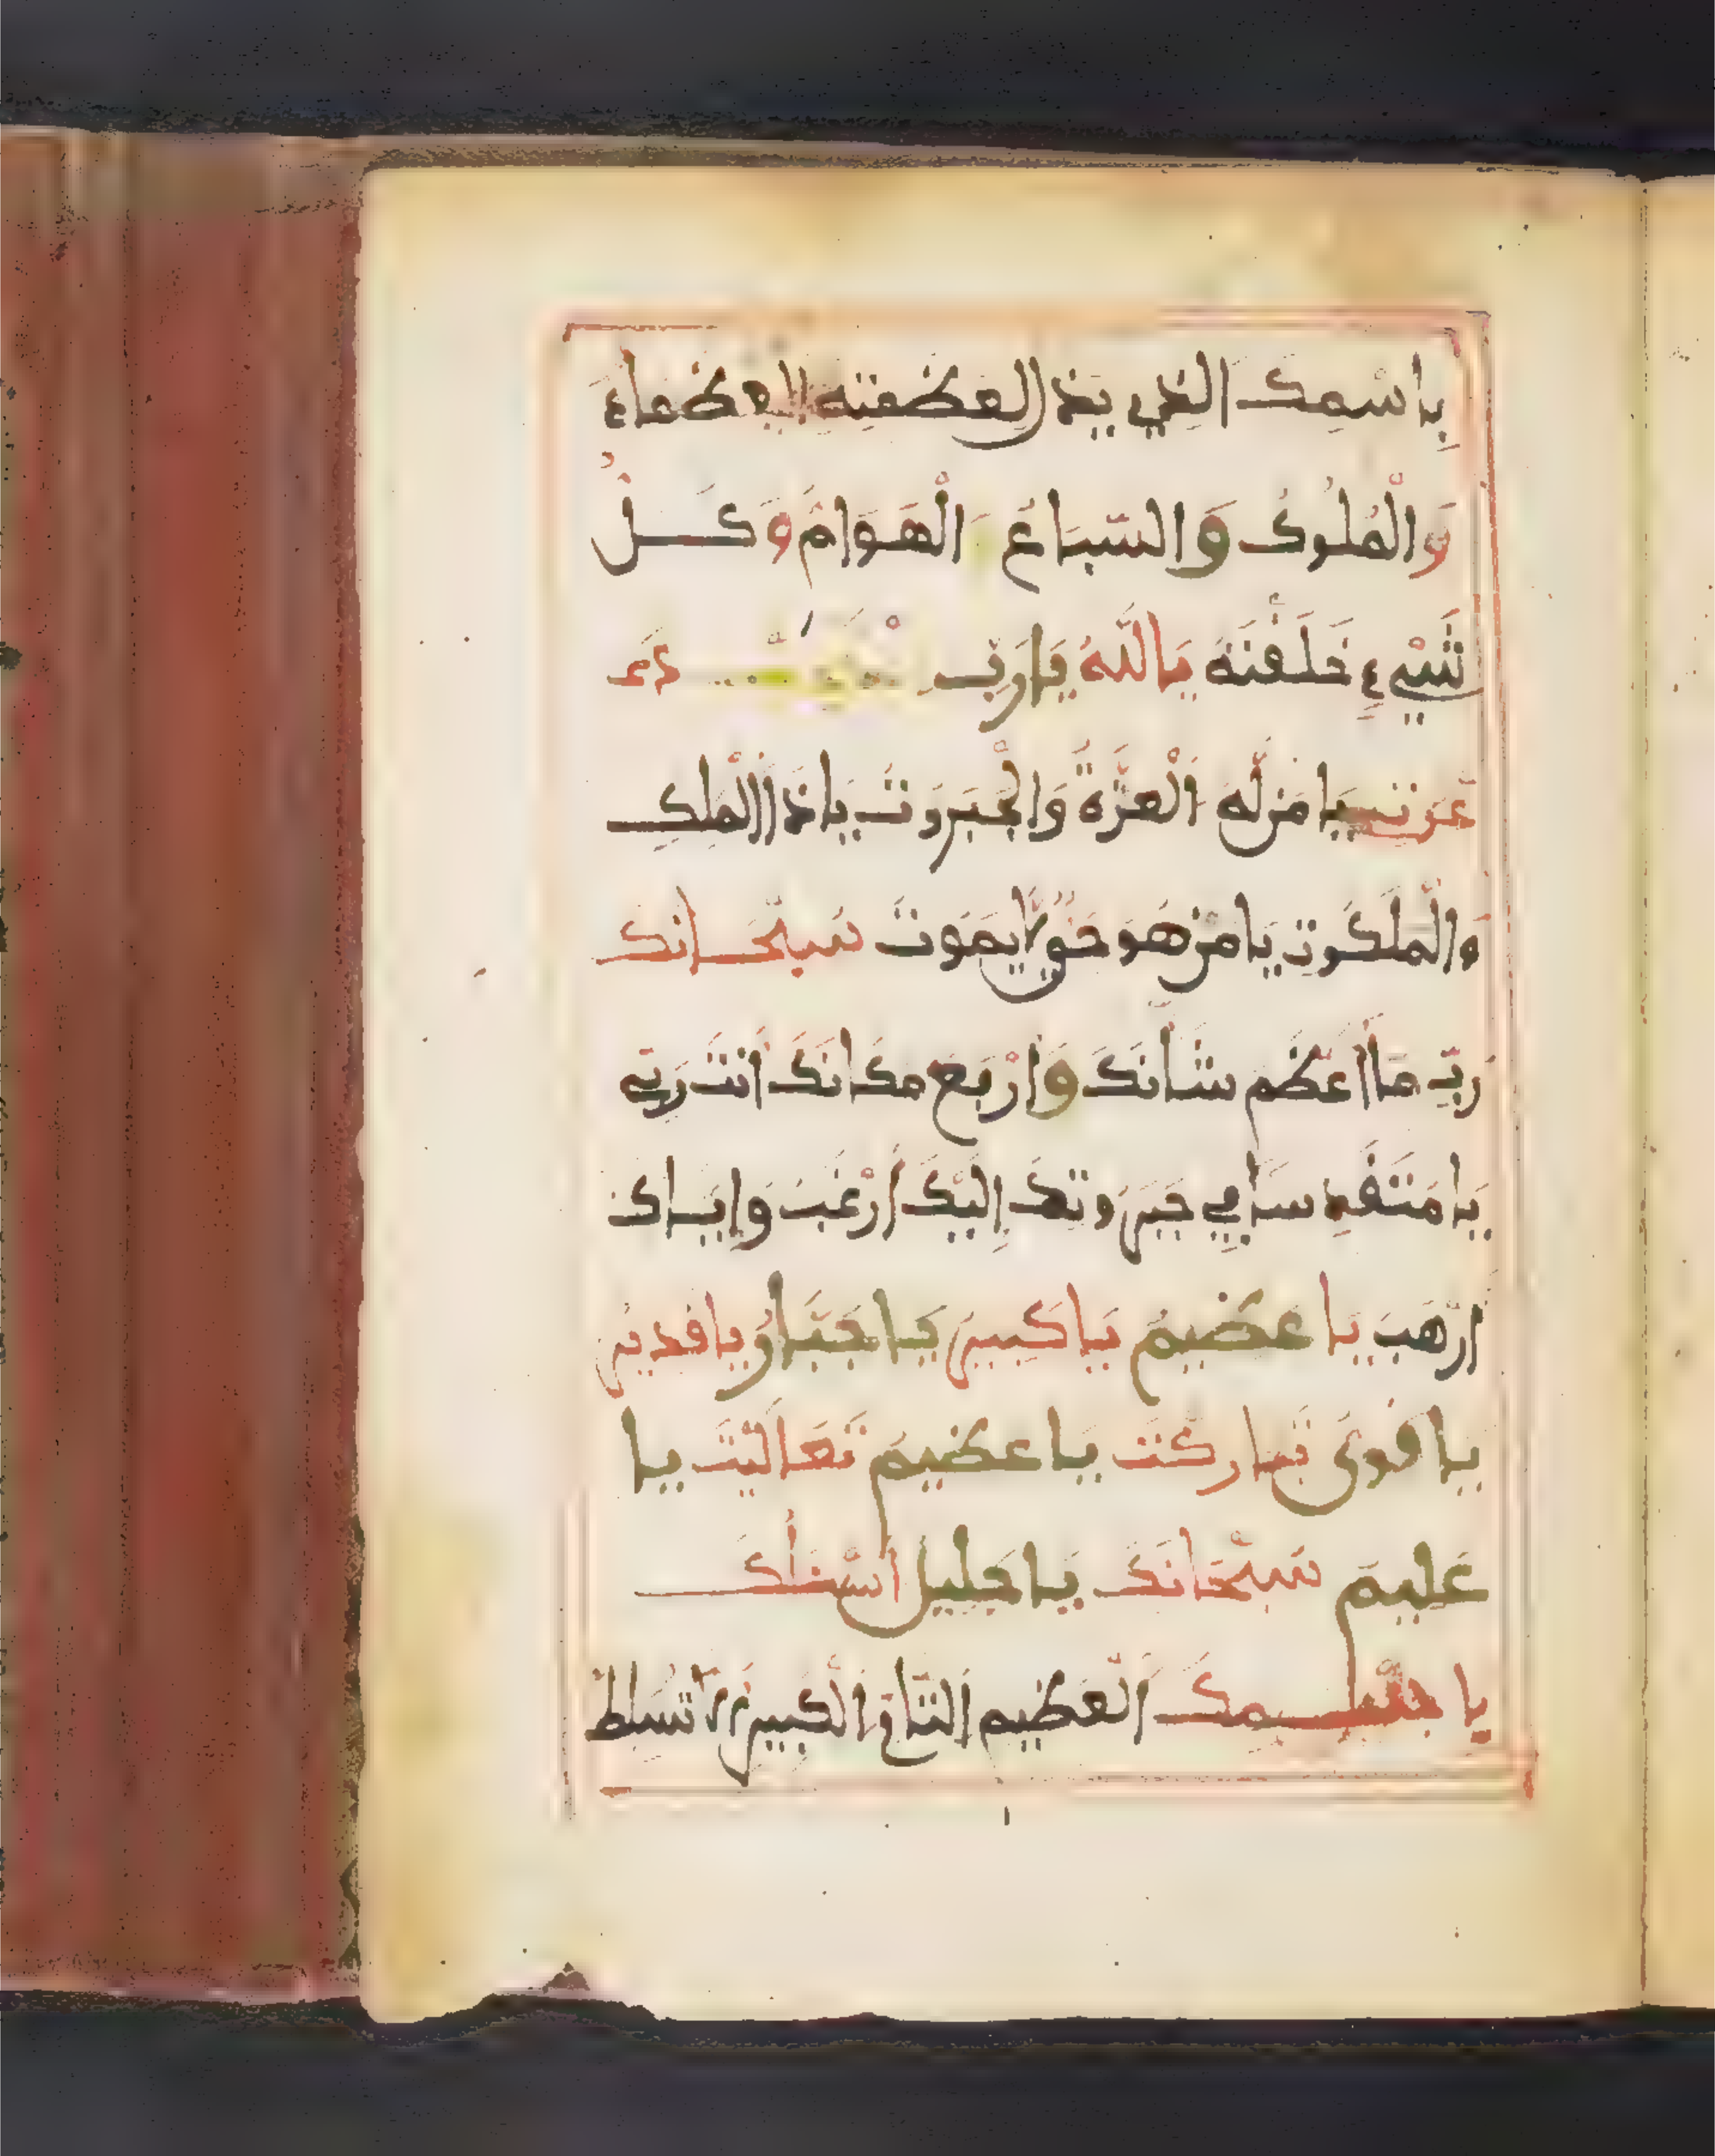 بِاسْمِكَ الذِي يذل لعظمته العظماء
وَالْمُلُوكُ وَالسِّبَاعُ الْهَوَامُّ وَكُلُّ
شَيْءٍ خَلَقْتَهُ يَا اللَّهُ يَارَبِّ
يَا مَن لَّهُ الْعِزَّةُ وَالْجَبَرُوتُ يَاذَا الْمُلْكِ
وَالْمَلَكُوتِ يَا مَنْ هُوَ حَيٌّ لَا يَمُوتُ سُبْحَانَكَ
رَبِّ مَا أَعْظَمَ شَأْنَكَ وَأَرْبَعَ مَكَانَكَ أَنْتَ رَبِّي
يَا مُتَقَدِّسًا فِي جَبَرُوتِهِ إِلَيْكَ أَرْغَبُ وَإِيَّاكَ
أَرْهَبُ يَا عَظِيمُ يَا كَبِيرُ يَا جَبَّارُ يَا قَدِيرُ
يَا قَوِيُّ تَبَارَكْتَ يَا عَظِيمُ تَعَالَيْتَ يَا
عَلِيمُ سُبْحَانَكَ يَا جَلِيلُ أَسْأَلُكَ
الْعَظِيمِ التَّامِّ الْكَبِيرِ أَلَّا تُسَلِّطَ